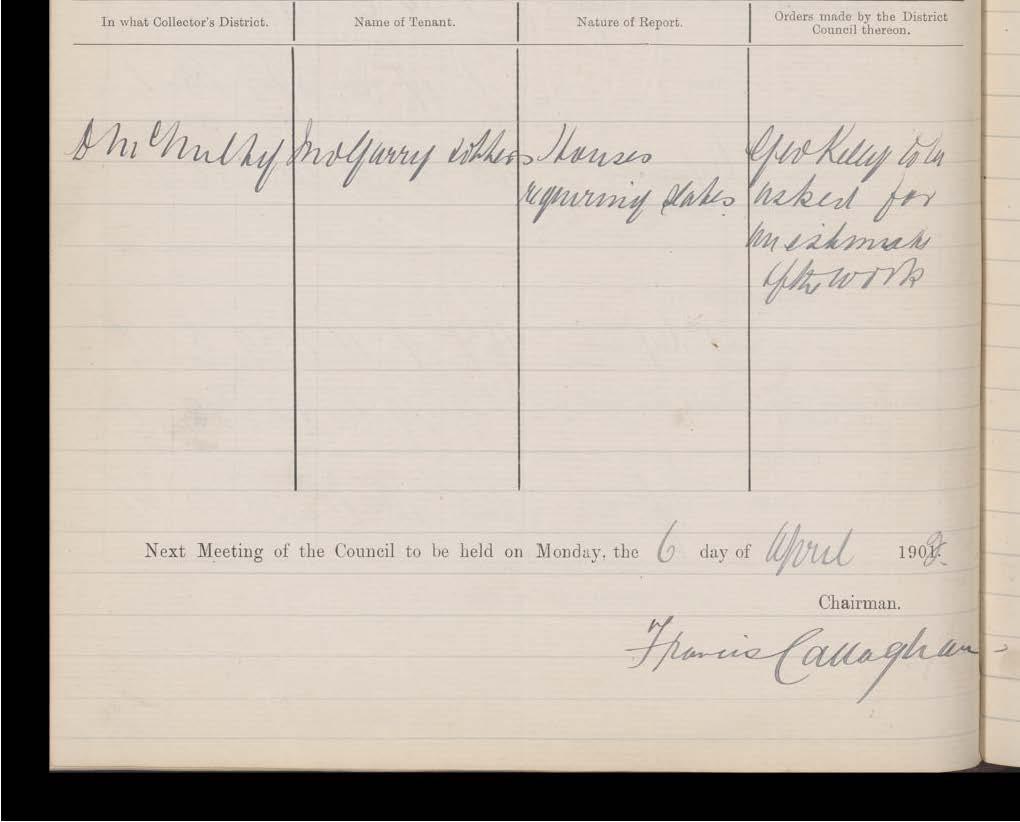 In what Collector's District.
Name of Tenant.
Nature of Report.
Orders made by the District
Council thereon.
D McNulty
Jno Garry & others
Houses
requiring slates
Geo Kelly to be
asked for
an estimate
of the work
Next Meeting of the Council to be held on Monday, the 6 day of April 1908.
Chairman.
Francis Callaghan